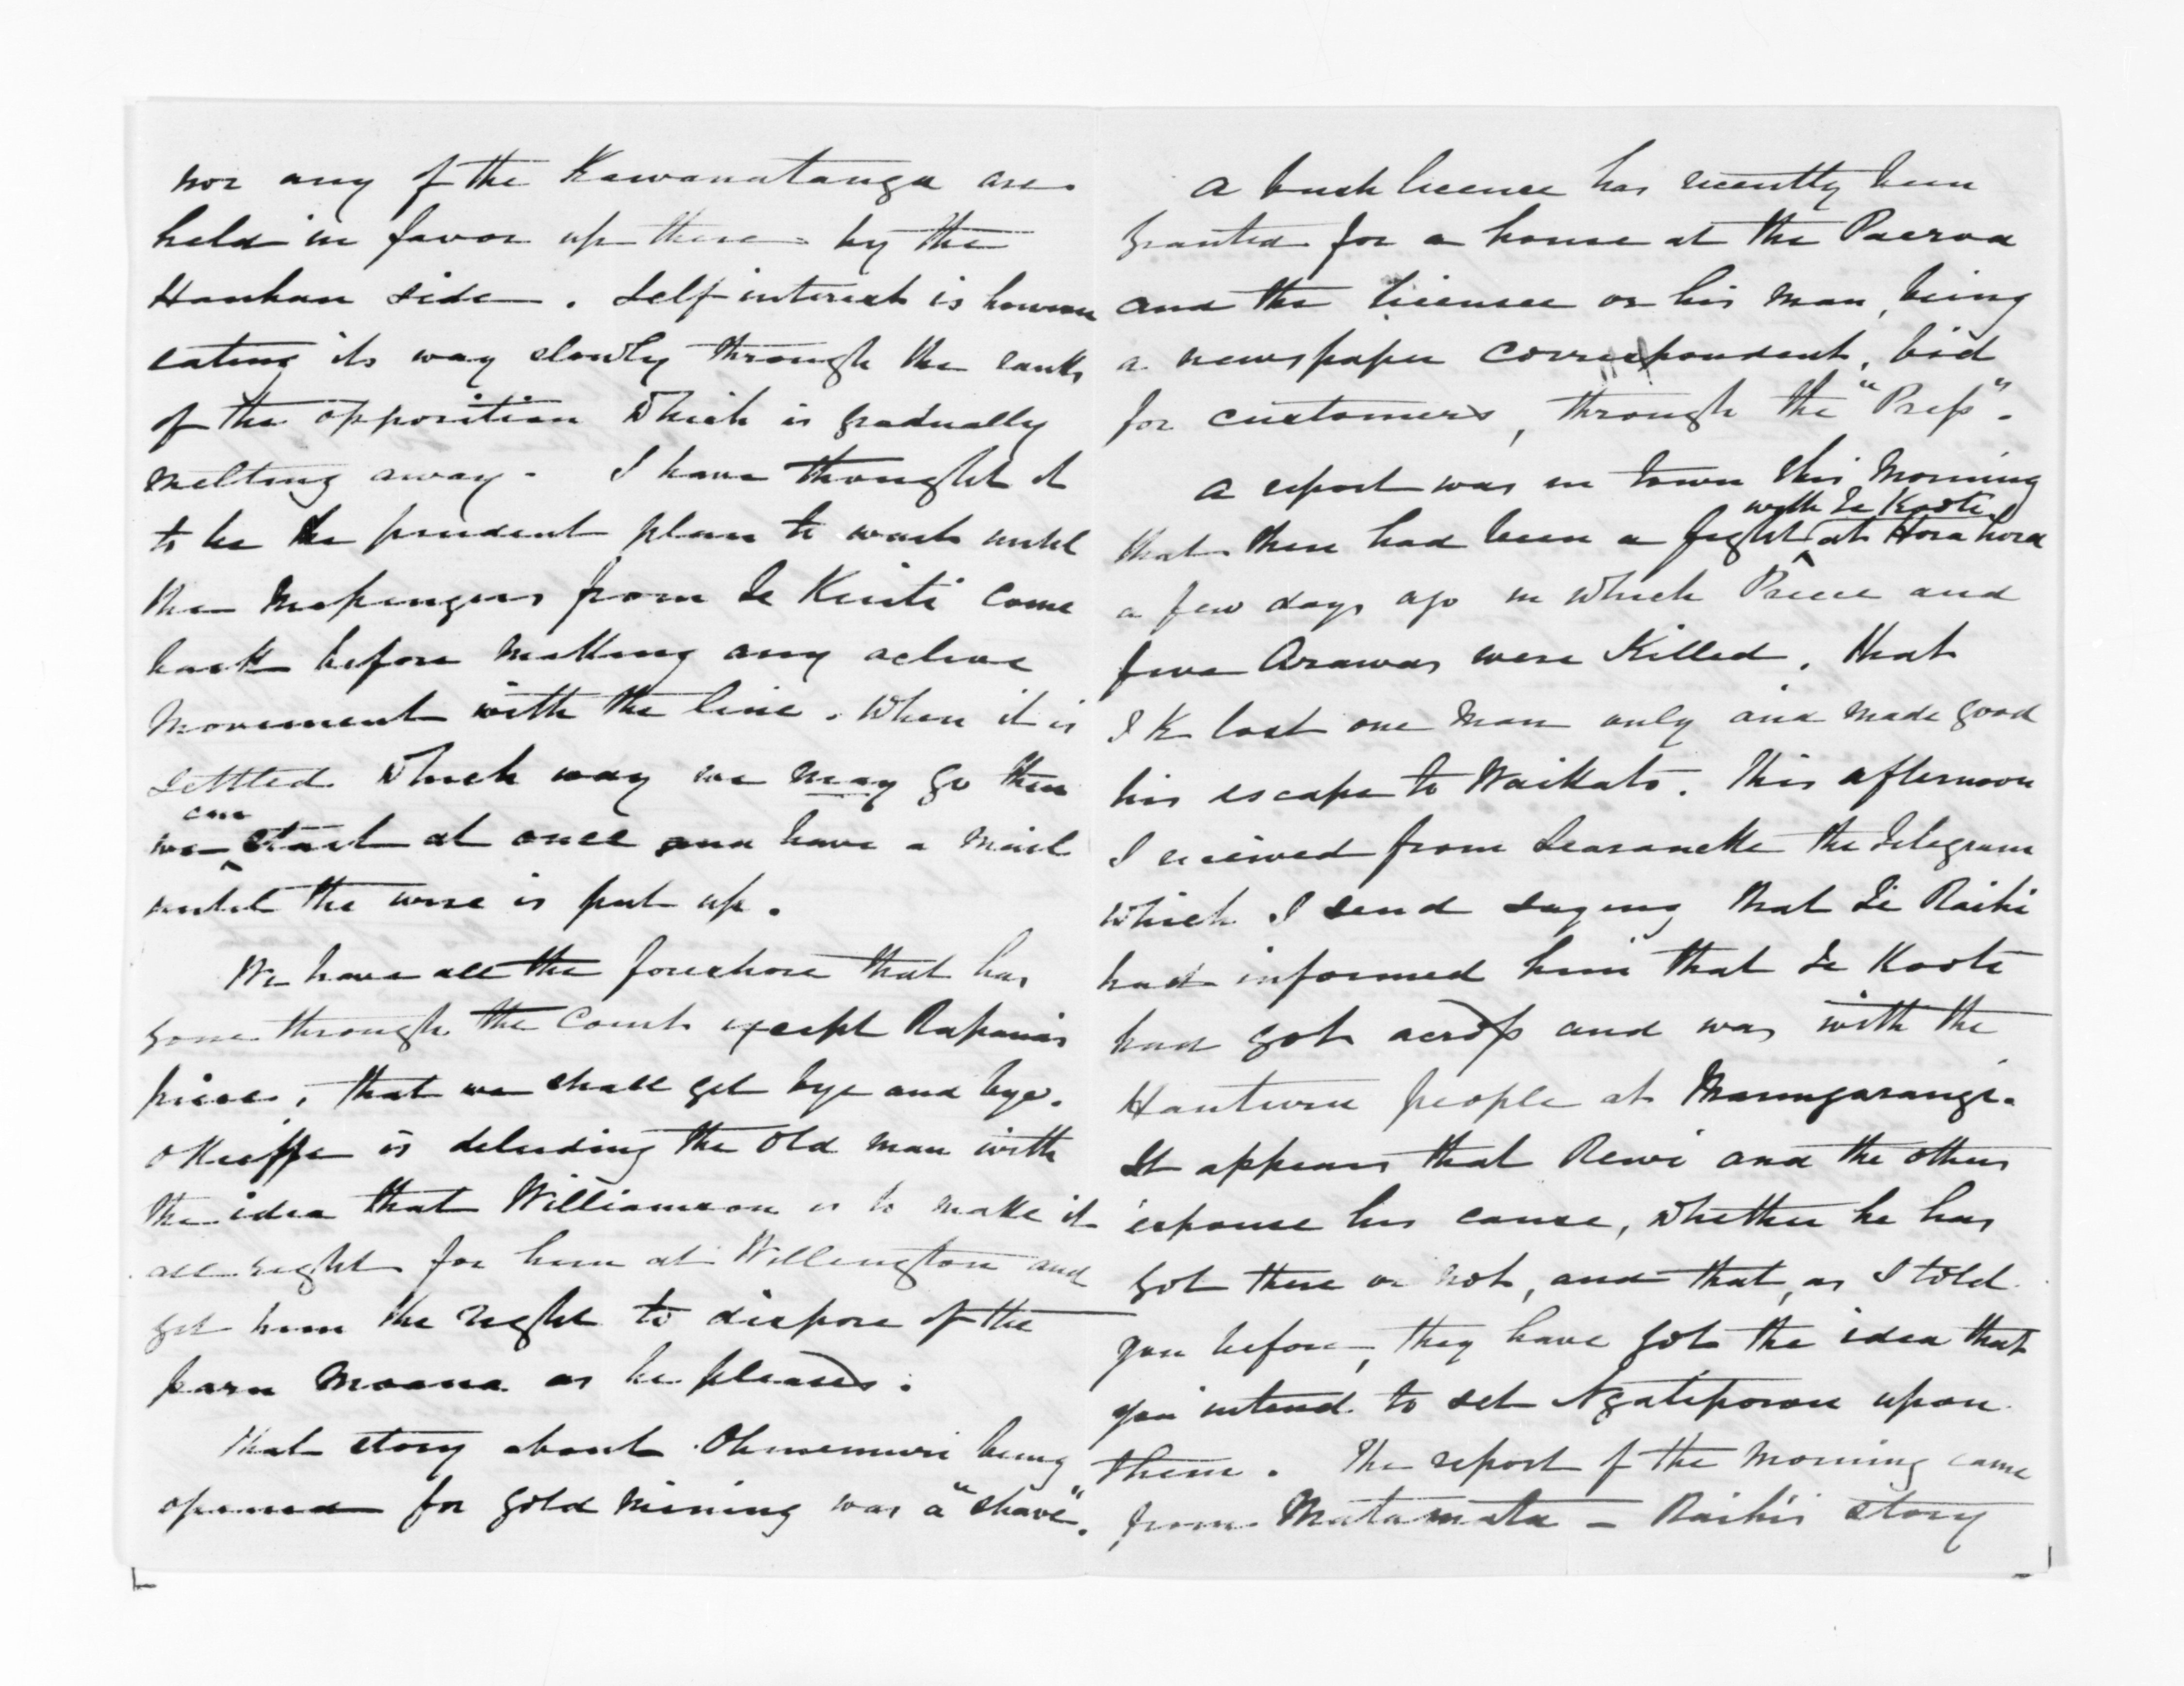 nor any of the Kawanatanga are
held in favor up there by the
Hauhau side. Self interest is however
eating its way slowly through the ranks
of the opposition which is gradually
melting away. I have thought it
to be the prudent plan to wait until
the Messengers from Te Kuiti come
back before making any active
movement with the line. When it is
settled which way we may go then
we can start at once and have a mail
until the wire is put up.
We have all the foreshore that has
gone through the Court except Rapana's
piece, that we shall get bye and bye.
OKeiffe is deluding the old man with
the idea that Williamson is to make it
all right for him at Wellington and
get him the right to dispose of the
paru moana as he pleases.
That story about Ohinemuri being
opened for gold mining was a "shave".
A bush licence has recently been
granted for a house at the Paeroa
and the licensee or his man, being
a newspaper correspondent, bid
for customers, through the "Press".
A report was in town this morning
that there had been a fight with Te Kooti at Hora hora
a few days ago in which Preece and
five Arawas were killed, that
T K lost one man only and made good
his escape to Waikato. This afternoon
I received from Searancke the telegram
which I send saying that Te Raihi
had informed him that Te Kooti
had got across and was with the
Hauturu people at Maungarangi.
It appears that Rewi and the others
espouse his cause, whether he has
got there or not, and that, as I told
you before, they have got the idea that
you intend to set Ngatiporou upon
them. The report of the morning came
from Matamata – Raihi's story